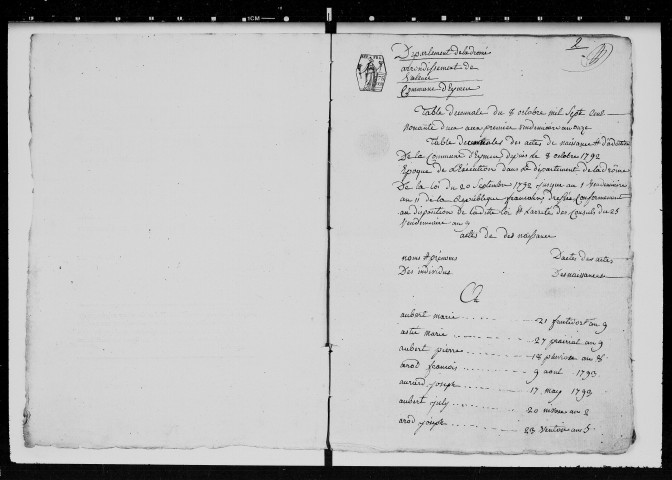 2
Departement de la drome
arrondissement de
valence
Commune d'Eymeu
Table decennale du 8 octobre mil Sept Cent
nonante deux aux premier vendemiaire an onze
Table decennales des actes de naissance et d'adoption
De la Commune d'Eymeu depuis de 8 octobre 1792
Epoque de L'Exécution dans le département de la drôme
De la loi du 20 Septembre 1792 jusque au 1 Vendemiaire
an 11 de la République francaise, dressée Conformement
au disposition de ladite loi et l'arreté des Consuls du 25
Vendemiaire an 9
actes de des naissance
noms et prénoms Dates des actes
Des individus Des naissances
A
aubert marie 21 fructidor an 9
astie marie 27 prairial an 9
aubert pierre 18 pluviose an 8
arod francois 9 aout 1793
joseph 17 may 1793
aubert july 20 nivose an 2
arod joseph 23 Ventose an 5